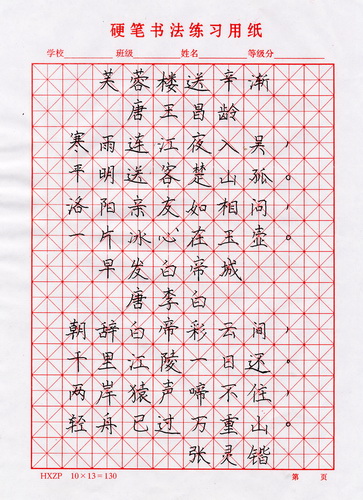 硬笔书法练习用纸
学校 班级 姓名 等级分
芙蓉楼送辛渐
唐王昌龄
寒雨连江夜入吴，
平明送客楚山孤。
洛阳亲友如相问，
一片冰心在玉壶。
早发白帝城
唐李白
朝辞白帝彩云间，
千里江陵一日还。
两岸猿声啼不住，
轻舟已过万重山。
张灵锴
HXZP 10×13=130 第 页